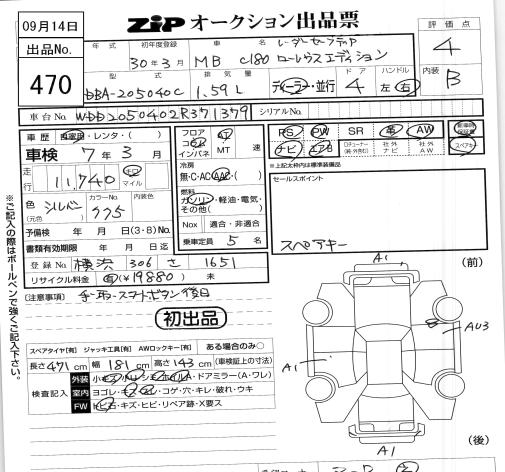 09月14日
ZiP オークション出品票
出品No.
470
評価点
4
内装
B
年式 初年度登録 車名
30年3月 MB C180 レーダーセーフティP ローレウスエディション
型式 排気量 ドア ハンドル
DBA-205040C 1.59L ディーラー・並行 4 左・右
車台No. WDD2050402R371379 シリアルNo.
車歴 自家用・レンタ( )
車検 7年3月
走行 11,740 キロ マイル
色 (元色) シルバー カラーNo. 775
予備検 年 月 日(3・8)No.
書類有効期限 年 月 日迄
登録No. 横浜 306 さ 1651
リサイクル料金 有(¥19880) 未
フロア コラム インパネ AT MT 速
冷房
無・C・AC・AAC・( )
燃料
ガソリン・軽油・電気・その他( )
Nox 適合・非適合
乗車定員 5 名
PS PW SR 革 AW
ナビ エアB 社外ナビ 社外AW スペアキー
※上記太枠内は標準装備品
セールスポイント
スペアキー
(注意事項) 手・取・スマートボタン後日
初出品
スペアタイヤ[有] ジャッキ工具[有] AWロックキー[有] ある場合のみ○
長さ471cm 幅181cm 高さ143cm (車検証上の寸法)
検査記入
外装 小キズ・小凹・シミ・ホイルA・ドアミラー(A・ワレ)
室内 ヨゴレ・キズ・スレ・コゲ・穴・キレ・破れ・ウキ
FW トビ石・キズ・ヒビ・リペア跡・X要ス
※ご記入の際はボールペンで強くご記入下さい。
A1 (前)
AU3
A1
A1 (後)